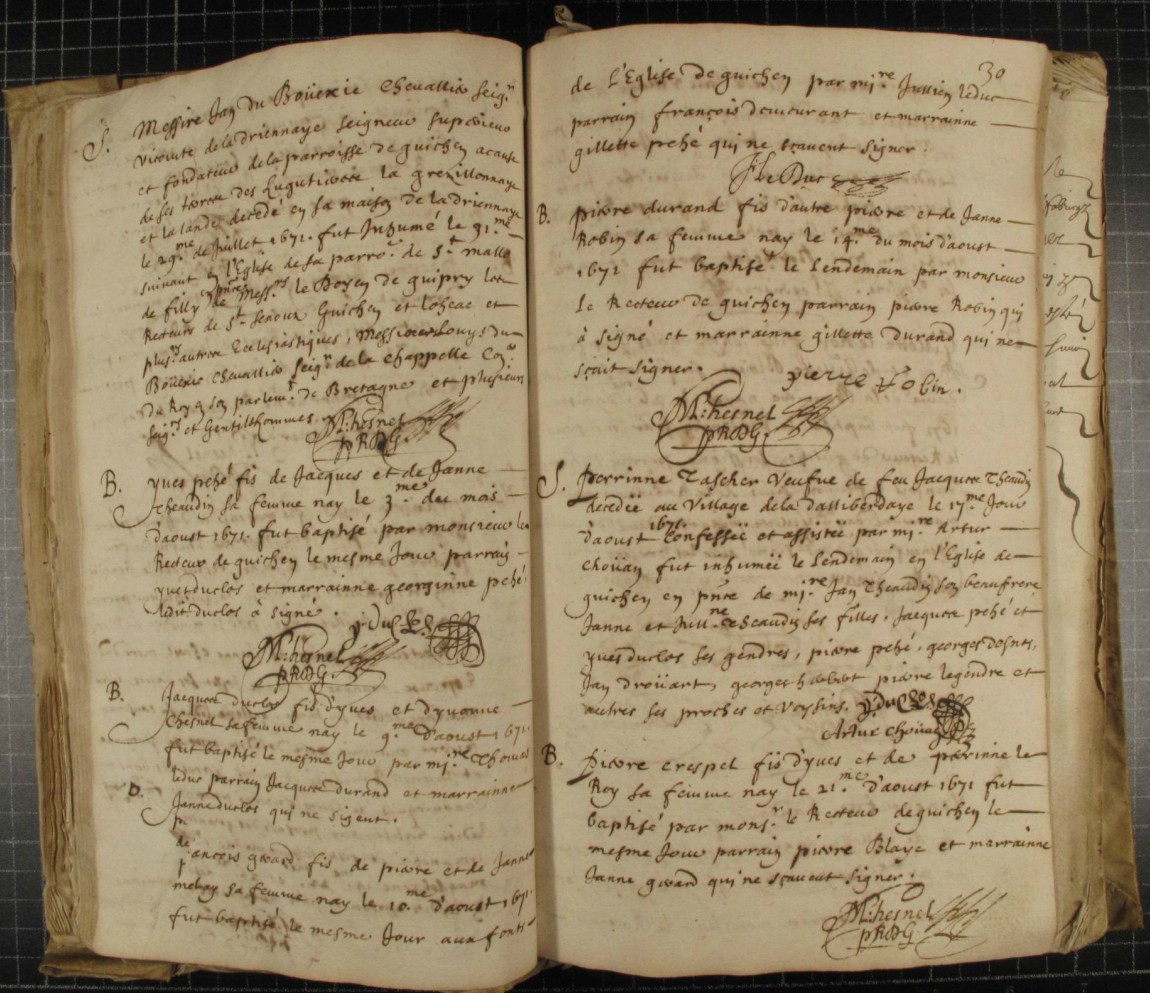 S. Messire Jan du Boüexic Chevallier Seigr
vicomte de la driennaye Seigneur Supérieur
et fondateur de la parroisse de guichen a cause
de ses terres des la grezillonnaye
et la lande decédé en sa maison de la driennaye
le 29.me de Juillet 1671. fut Inhumé le 31.me
suivant en l'Eglise de sa parro. de St mallo
de filly de Messrs le Doyen de guipry les
Recteurs de St Senoux Guichen et loheac et
plusrs autres Ecclesiastiques, Messire Louys du
Boüexic Chevallier Seigr de la Chappelle Conr
du Roy en son parlemt. de Bretagne et plusieurs
Seigrs et Gentilshommes.
M: hesnel
pRDG.
B. yves pehé fis de Jacques et de Janne
theaudin sa femme nay le 3.me du mois
d'aoust 1671. fut baptisé par monsieur le
Recteur de guichen le mesme Jour parrain
yves duclos et marrainne georginne pehé
ledit duclos à signé.
y. Duclos
M: hesnel
pRDG.
B. Jacques duclos fis d'yves et d'yvonne
Chesnel sa femme nay le 9.me d'aoust 1671.
fut baptisé le mesme Jour par mi.re Thomas
leduc parrain Jacques durand et marrainne
Janne duclos qui ne signent.
B.
françois gward fis de pierre et de Janne
melay sa femme nay le 10.me d'aoust 1671.
fut baptisé le mesme Jour aux fonts
30
de l'Eglise de guichen par mi.re Jullien leduc
parrain françois demourant et marrainne
gillette pehé qui ne sçavent signer.
J le Duc
B. pierre durand fis d'autre pierre et de Janne
Robin sa femme nay le 14.me du mois d'aoust
1671 fut baptisé le lendemain par monsieur
le Recteur de guichen parrain pierre Robin qui
à signé et marrainne gillette durand qui ne
sçait signer.
pierre Robin.
M: hesnel
pRDG.
S. perrinne Tascher Veufue de feu Jacques Theaudin
decedée au Village de la dalliberdaye le 17.me Jour
d'aoust 1671. Confessée et assistée par mi.re Artur
Choüan fut inhumée le lendemain en l'Eglise de
guichen en pnce de mi.re Jan Theaudin son beaufrere
Janne et Jull.ne Theaudin ses filles, Jacques pehé et
yves duclos ses gendres, pierre pehé, georges Desnes,
Jan Droüart, georges hubert pierre legendre et
autres ses proches et Voysins. y. duclos
Artur Choüan
B. pierre crespel fis d'yves et de perrinne le
Roy sa femme nay le 21.me d'aoust 1671 fut
baptisé par monsr. le Recteur de guichen le
mesme Jour parrain pierre Blaye et marrainne
Janne gward qui ne sçavent signer.
M: hesnel
pRDG